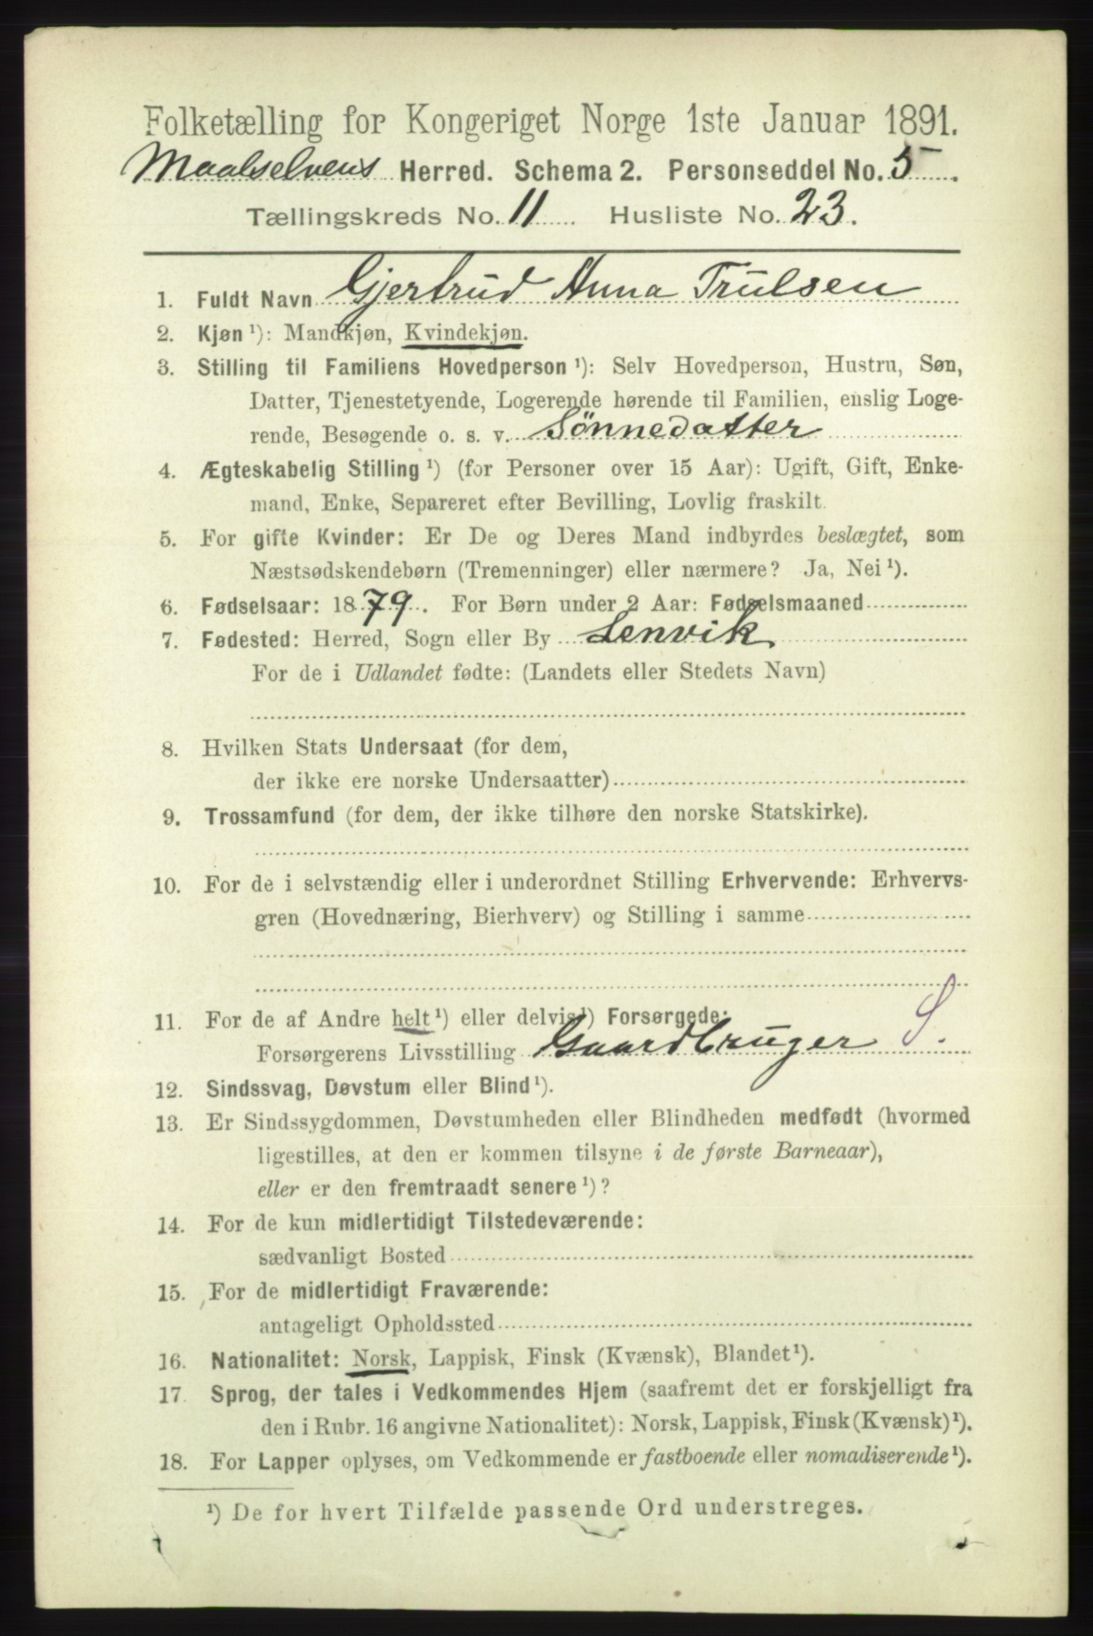 Folketælling for Kongeriget Norge 1ste Januar 1891.
Maalselvens Herred. Schema 2. Personseddel No. 5.
Tællingskreds No. 11 Husliste No. 23.
1. Fuldt Navn Gjertrud Anna Trulsen
2. Kjøn ¹): Mandkjøn, Kvindekjøn.
3. Stilling til Familiens Hovedperson ¹): Selv Hovedperson, Hustru, Søn,
Datter, Tjenestetyende, Logerende hørende til Familien, enslig Loge-
rende, Besøgende o. s. v. Sønnedatter
4. Ægteskabelig Stilling ¹) (for Personer over 15 Aar): Ugift, Gift, Enke-
mand, Enke, Separeret efter Bevilling, Lovlig fraskilt.
5. For gifte Kvinder: Er De og Deres Mand indbyrdes beslægtet, som
Næstsødskendebørn (Tremenninger) eller nærmere? Ja, Nei ¹).
6. Fødselsaar: 1879. For Børn under 2 Aar: Fødselsmaaned
7. Fødested: Herred, Sogn eller By Lenvik
For de i Udlandet fødte: (Landets eller Stedets Navn)
8. Hvilken Stats Undersaat (for dem,
der ikke ere norske Undersaatter)
9. Trossamfund (for dem, der ikke tilhøre den norske Statskirke).
10. For de i selvstændig eller i underordnet Stilling Erhvervende: Erhvervs-
gren (Hovednæring, Bierhverv) og Stilling i samme
11. For de af Andre helt ¹) eller delvis ¹) Forsørgede:
Forsørgerens Livsstilling Gaardbruger S.
12. Sindssvag, Døvstum eller Blind ¹).
13. Er Sindssygdommen, Døvstumheden eller Blindheden medfødt (hvormed
ligestilles, at den er kommen tilsyne i de første Barneaar),
eller er den fremtraadt senere ¹)?
14. For de kun midlertidigt Tilstedeværende:
sædvanligt Bosted
15. For de midlertidigt Fraværende:
antageligt Opholdssted
16. Nationalitet: Norsk, Lappisk, Finsk (Kvænsk), Blandet ¹).
17. Sprog, der tales i Vedkommendes Hjem (saafremt det er forskjelligt fra
den i Rubr. 16 angivne Nationalitet): Norsk, Lappisk, Finsk (Kvænsk) ¹).
18. For Lapper oplyses, om Vedkommende er fastboende eller nomadiserende ¹).
¹) De for hvert Tilfælde passende Ord understreges.